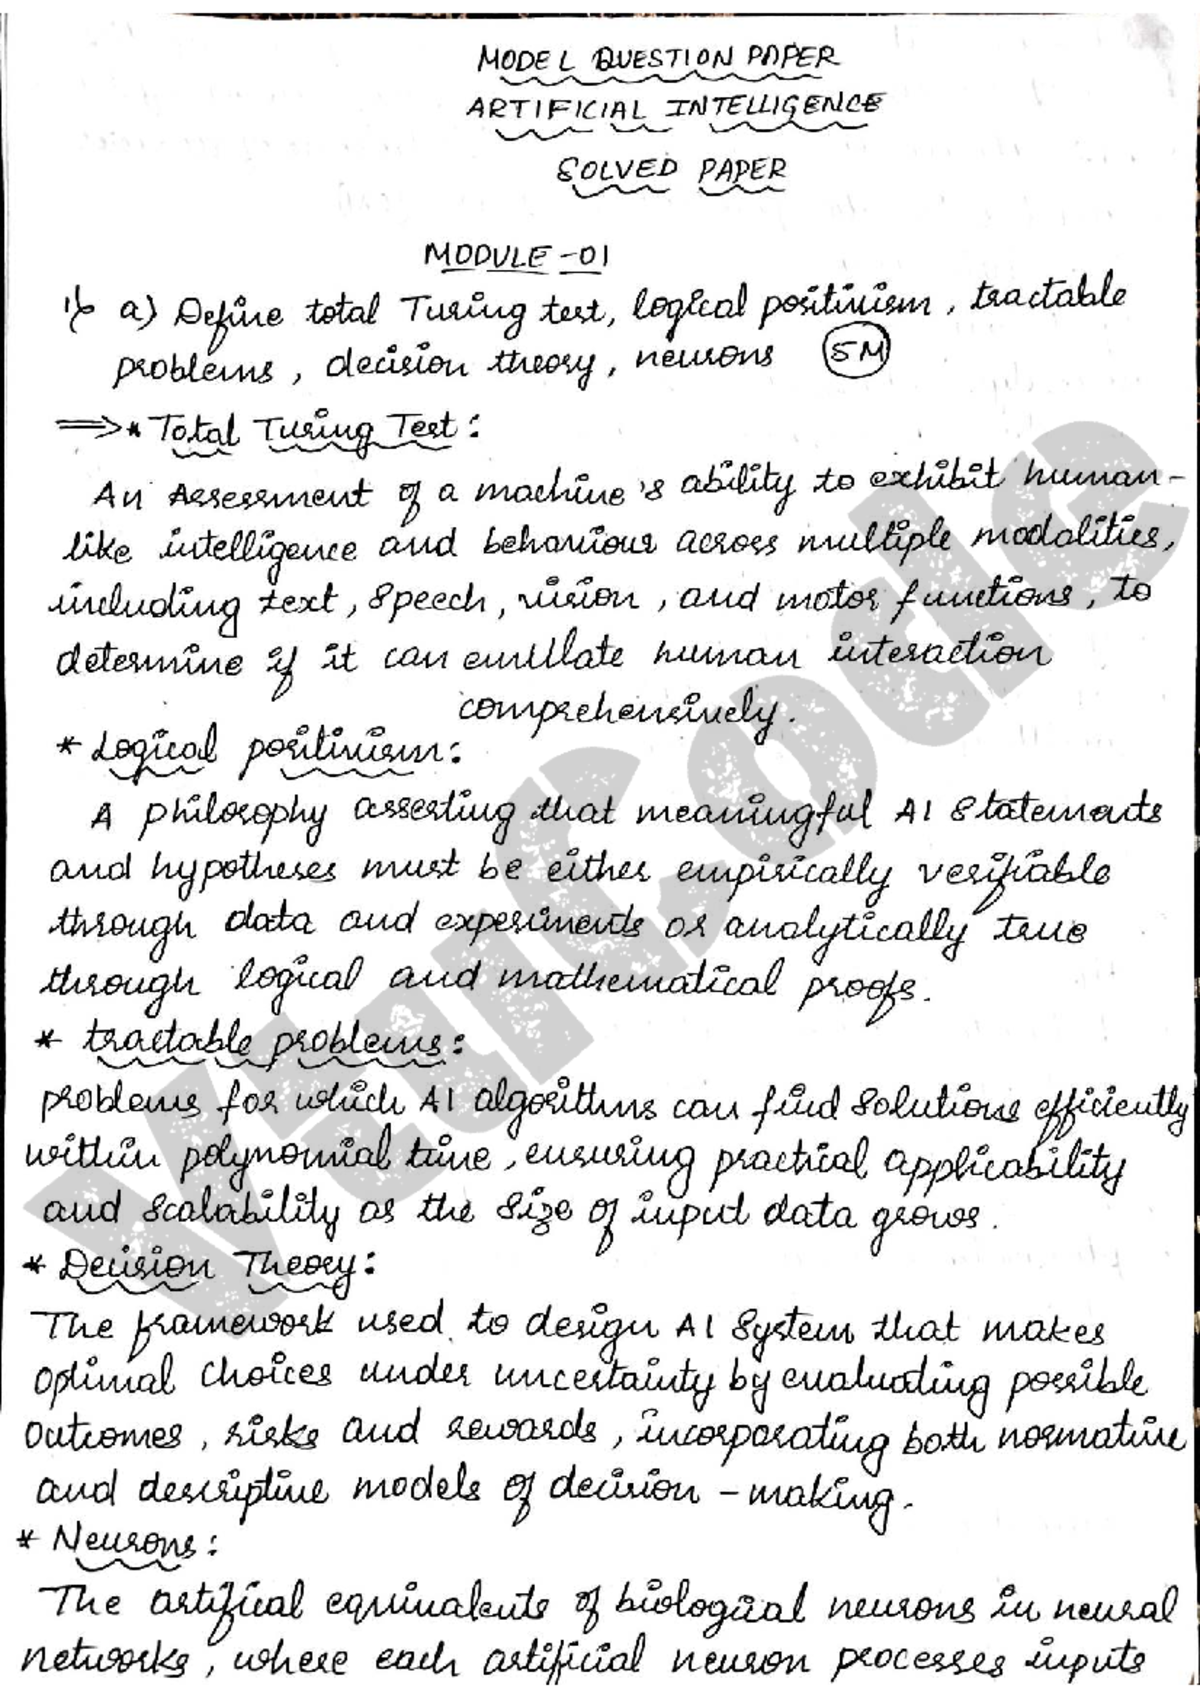 MODEL QUESTION PAPER
ARTIFICIAL INTELLIGENCE
SOLVED PAPER
MODULE -01
1) a) Define total Turing test, logical positivism, tractable
problems, decision theory, neurons 5M
⇒ * Total Turing Test:
An Assessment of a machine's ability to exhibit human-
like intelligence and behavious across multiple modalities,
including text, speech, vision, and motor functions, to
determine if it can emulate human interaction
comprehensively.
* Logical positivism:
A philosophy asserting that meaningful AI statements
and hypotheses must be either empirically verifiable
through data and experiments or analytically true
through logical and mathematical proofs.
* tractable problems:
problems for which AI algorithms can find solutions efficiently
within polynomial time, ensuring practical applicability
and scalability as the size of input data grows.
* Decision Theory:
The framework used to design AI system that makes
optimal choices under uncertainty by evaluating possible
outcomes, risks and rewards, incorporating both normative
and descriptive models of decision-making.
* Neurons:
The artifical equivalents of biological neurons in neural
networks, where each artificial neuron processes inputs
VtuCode